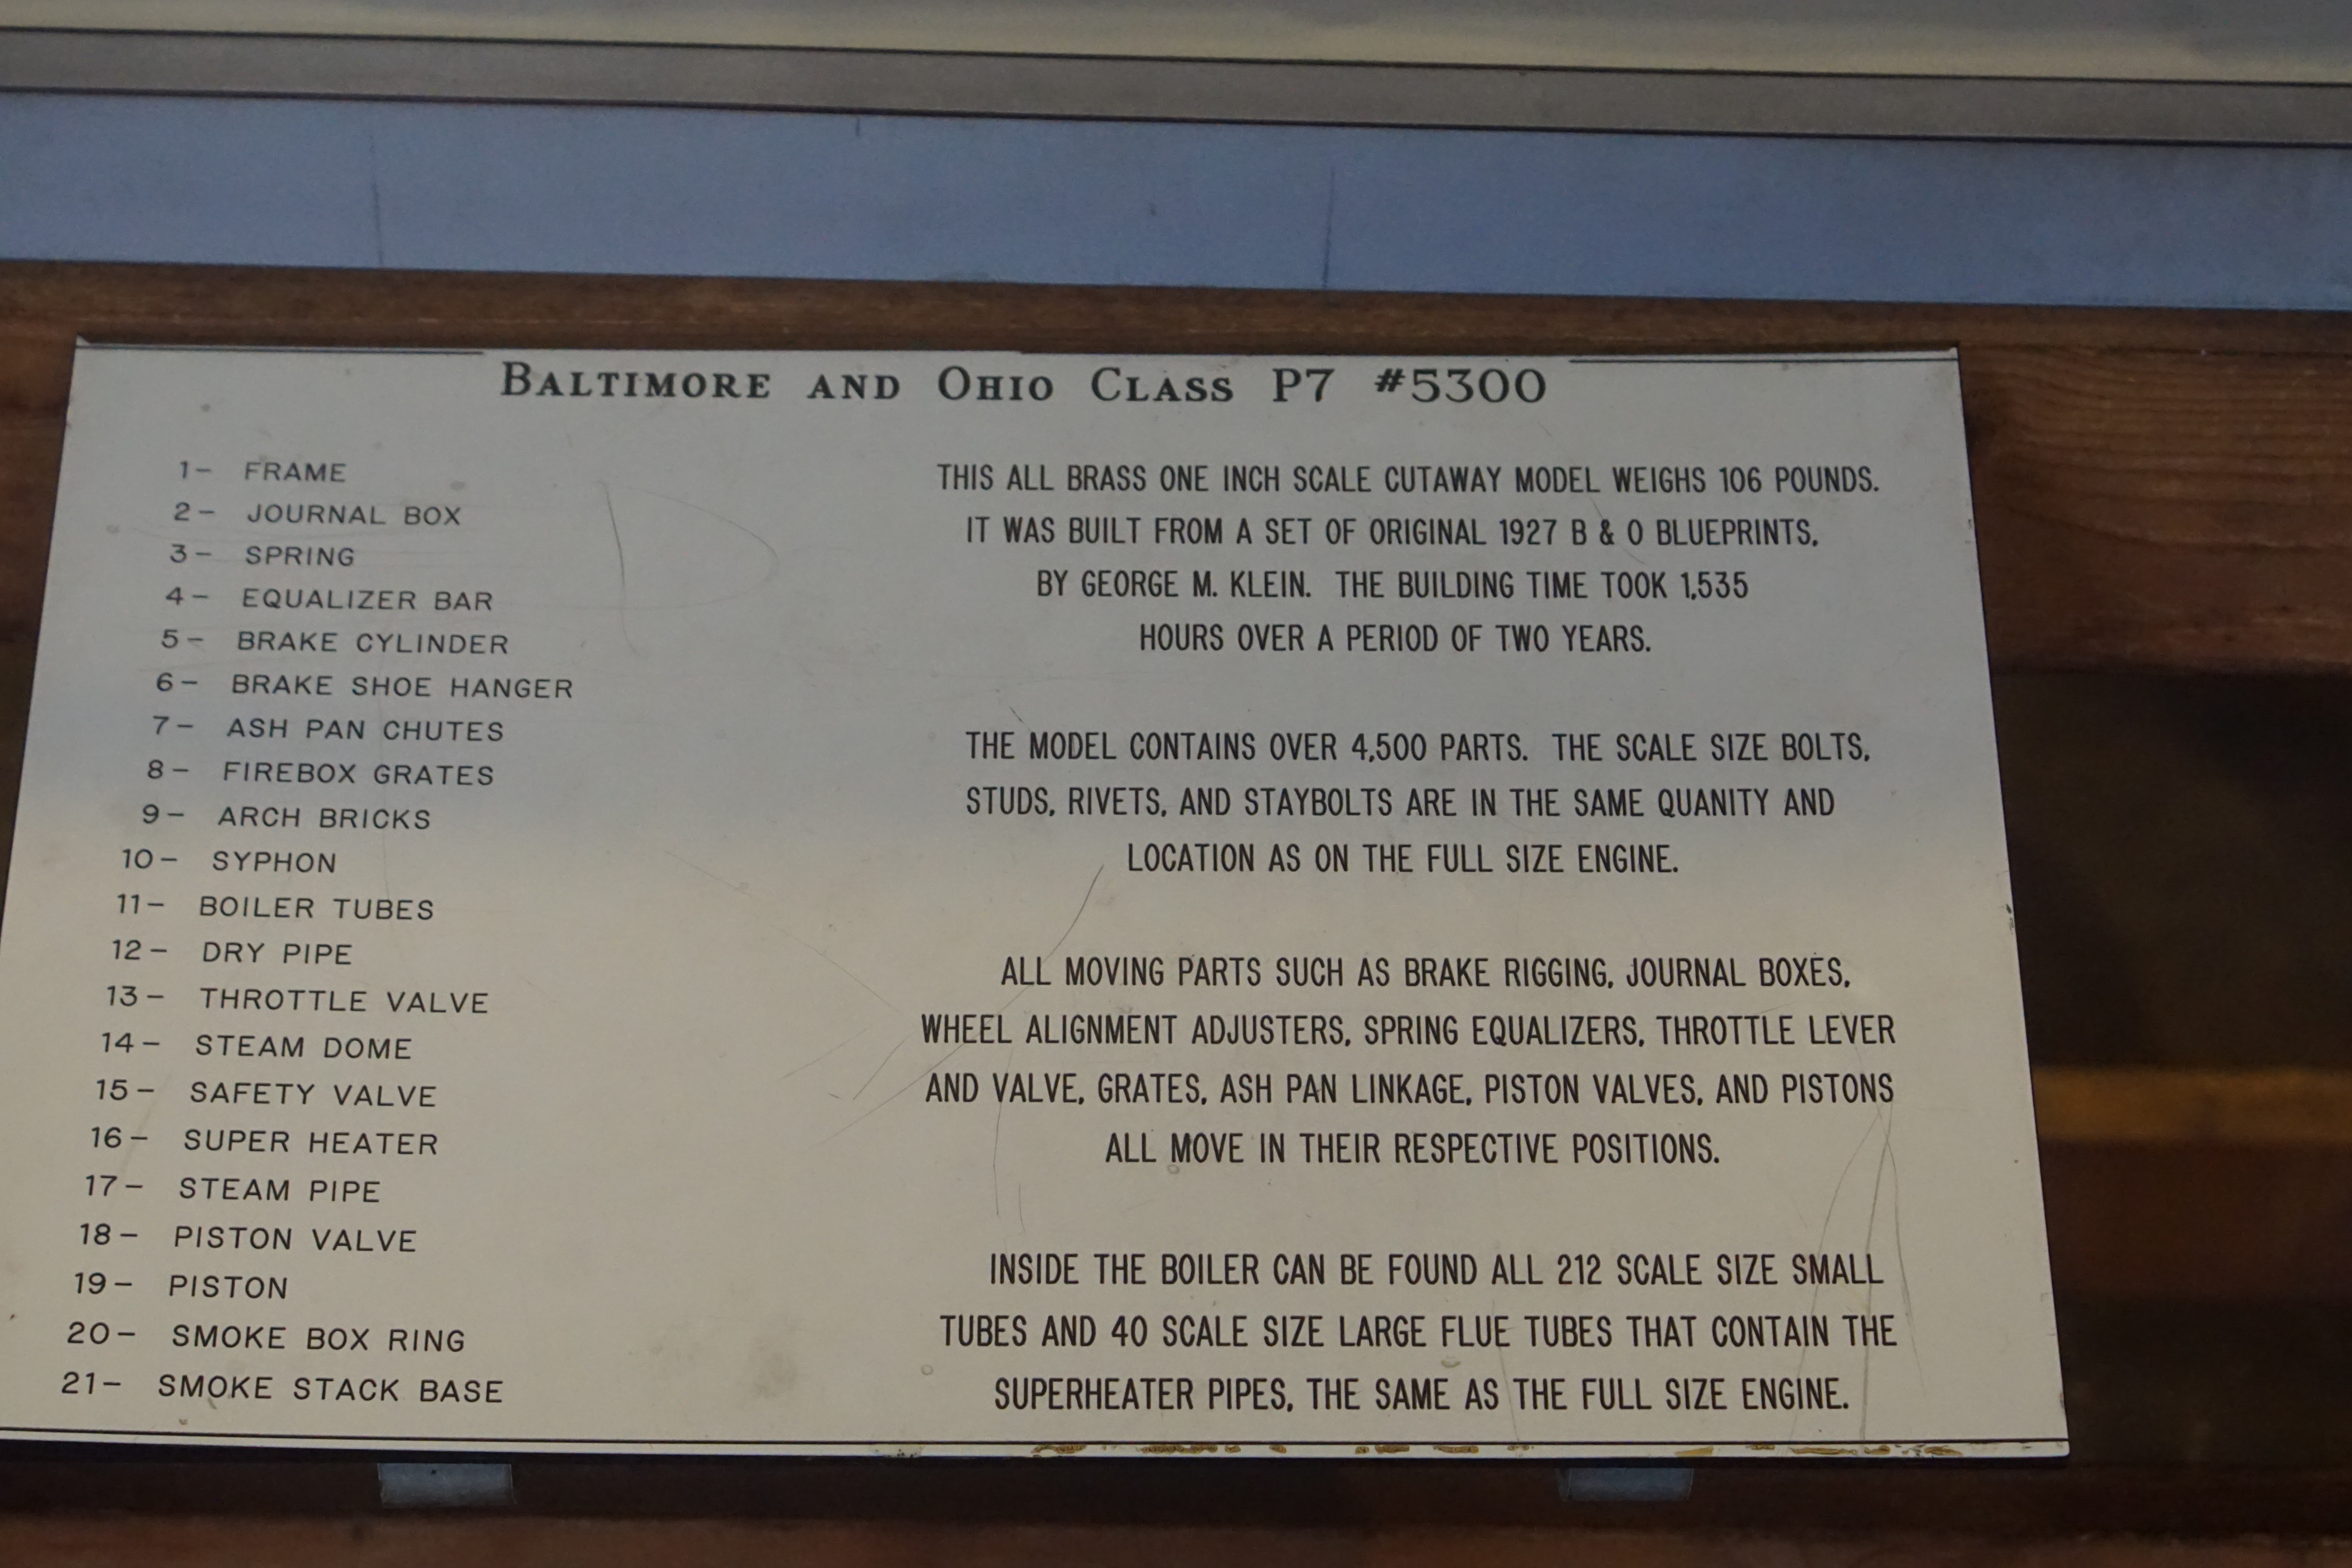 BALTIMORE AND OHIO CLASS P7 #5300
1- FRAME
2- JOURNAL BOX
3- SPRING
4- EQUALIZER BAR
5- BRAKE CYLINDER
6- BRAKE SHOE HANGER
7- ASH PAN CHUTES
8- FIREBOX GRATES
9- ARCH BRICKS
10- SYPHON
11- BOILER TUBES
12- DRY PIPE
13- THROTTLE VALVE
14- STEAM DOME
15- SAFETY VALVE
16- SUPER HEATER
17- STEAM PIPE
18- PISTON VALVE
19- PISTON
20- SMOKE BOX RING
21- SMOKE STACK BASE
THIS ALL BRASS ONE INCH SCALE CUTAWAY MODEL WEIGHS 106 POUNDS.
IT WAS BUILT FROM A SET OF ORIGINAL 1927 B & O BLUEPRINTS,
BY GEORGE M. KLEIN. THE BUILDING TIME TOOK 1,535
HOURS OVER A PERIOD OF TWO YEARS.
THE MODEL CONTAINS OVER 4,500 PARTS. THE SCALE SIZE BOLTS,
STUDS, RIVETS, AND STAYBOLTS ARE IN THE SAME QUANITY AND
LOCATION AS ON THE FULL SIZE ENGINE.
ALL MOVING PARTS SUCH AS BRAKE RIGGING, JOURNAL BOXES,
WHEEL ALIGNMENT ADJUSTERS, SPRING EQUALIZERS, THROTTLE LEVER
AND VALVE, GRATES, ASH PAN LINKAGE, PISTON VALVES, AND PISTONS
ALL MOVE IN THEIR RESPECTIVE POSITIONS.
INSIDE THE BOILER CAN BE FOUND ALL 212 SCALE SIZE SMALL
TUBES AND 40 SCALE SIZE LARGE FLUE TUBES THAT CONTAIN THE
SUPERHEATER PIPES, THE SAME AS THE FULL SIZE ENGINE.